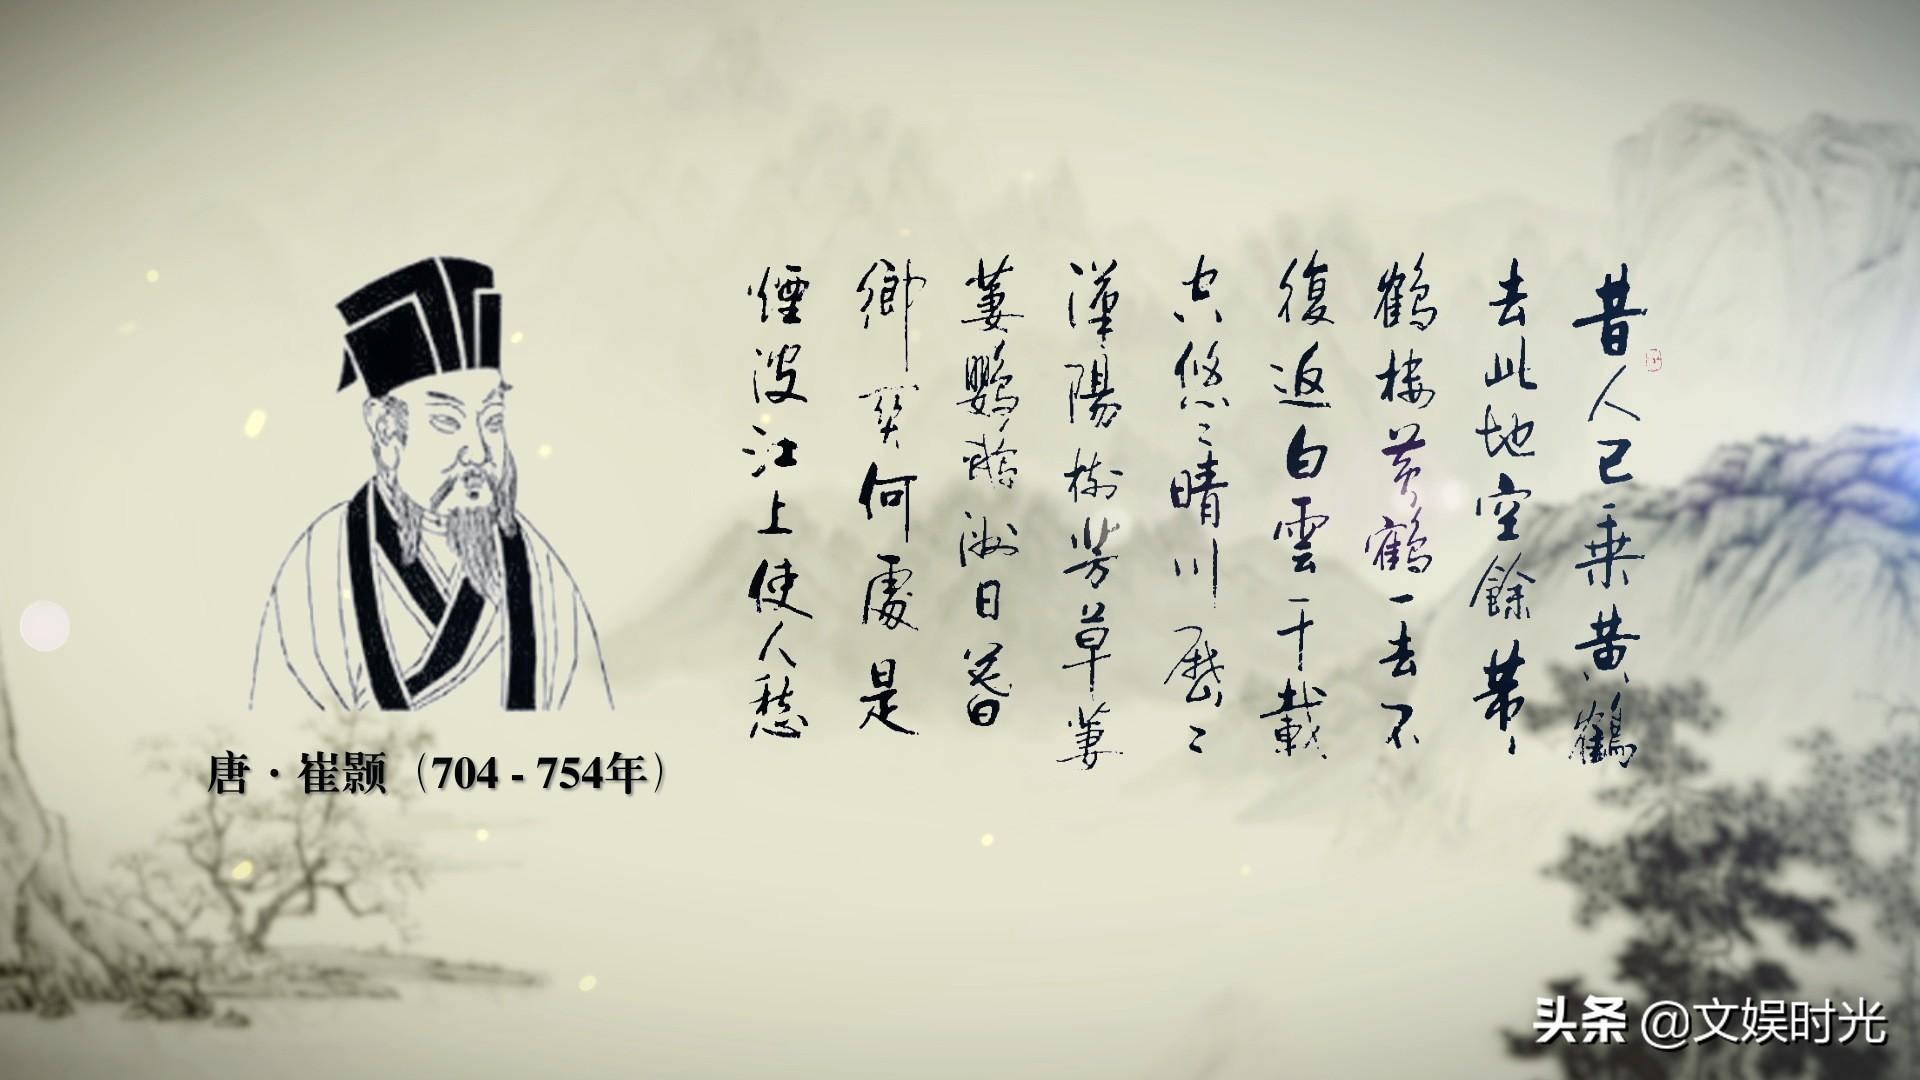 昔人已乘黄鶴
去此地空餘黄
鶴楼黄鶴一去不
復返白雲千載
空悠々晴川歷々
漢陽樹芳草萋
萋鸚鵡洲日暮
鄉關何處是
煙波江上使人愁
唐·崔颢（704 - 754年）
头条 @文娱时光